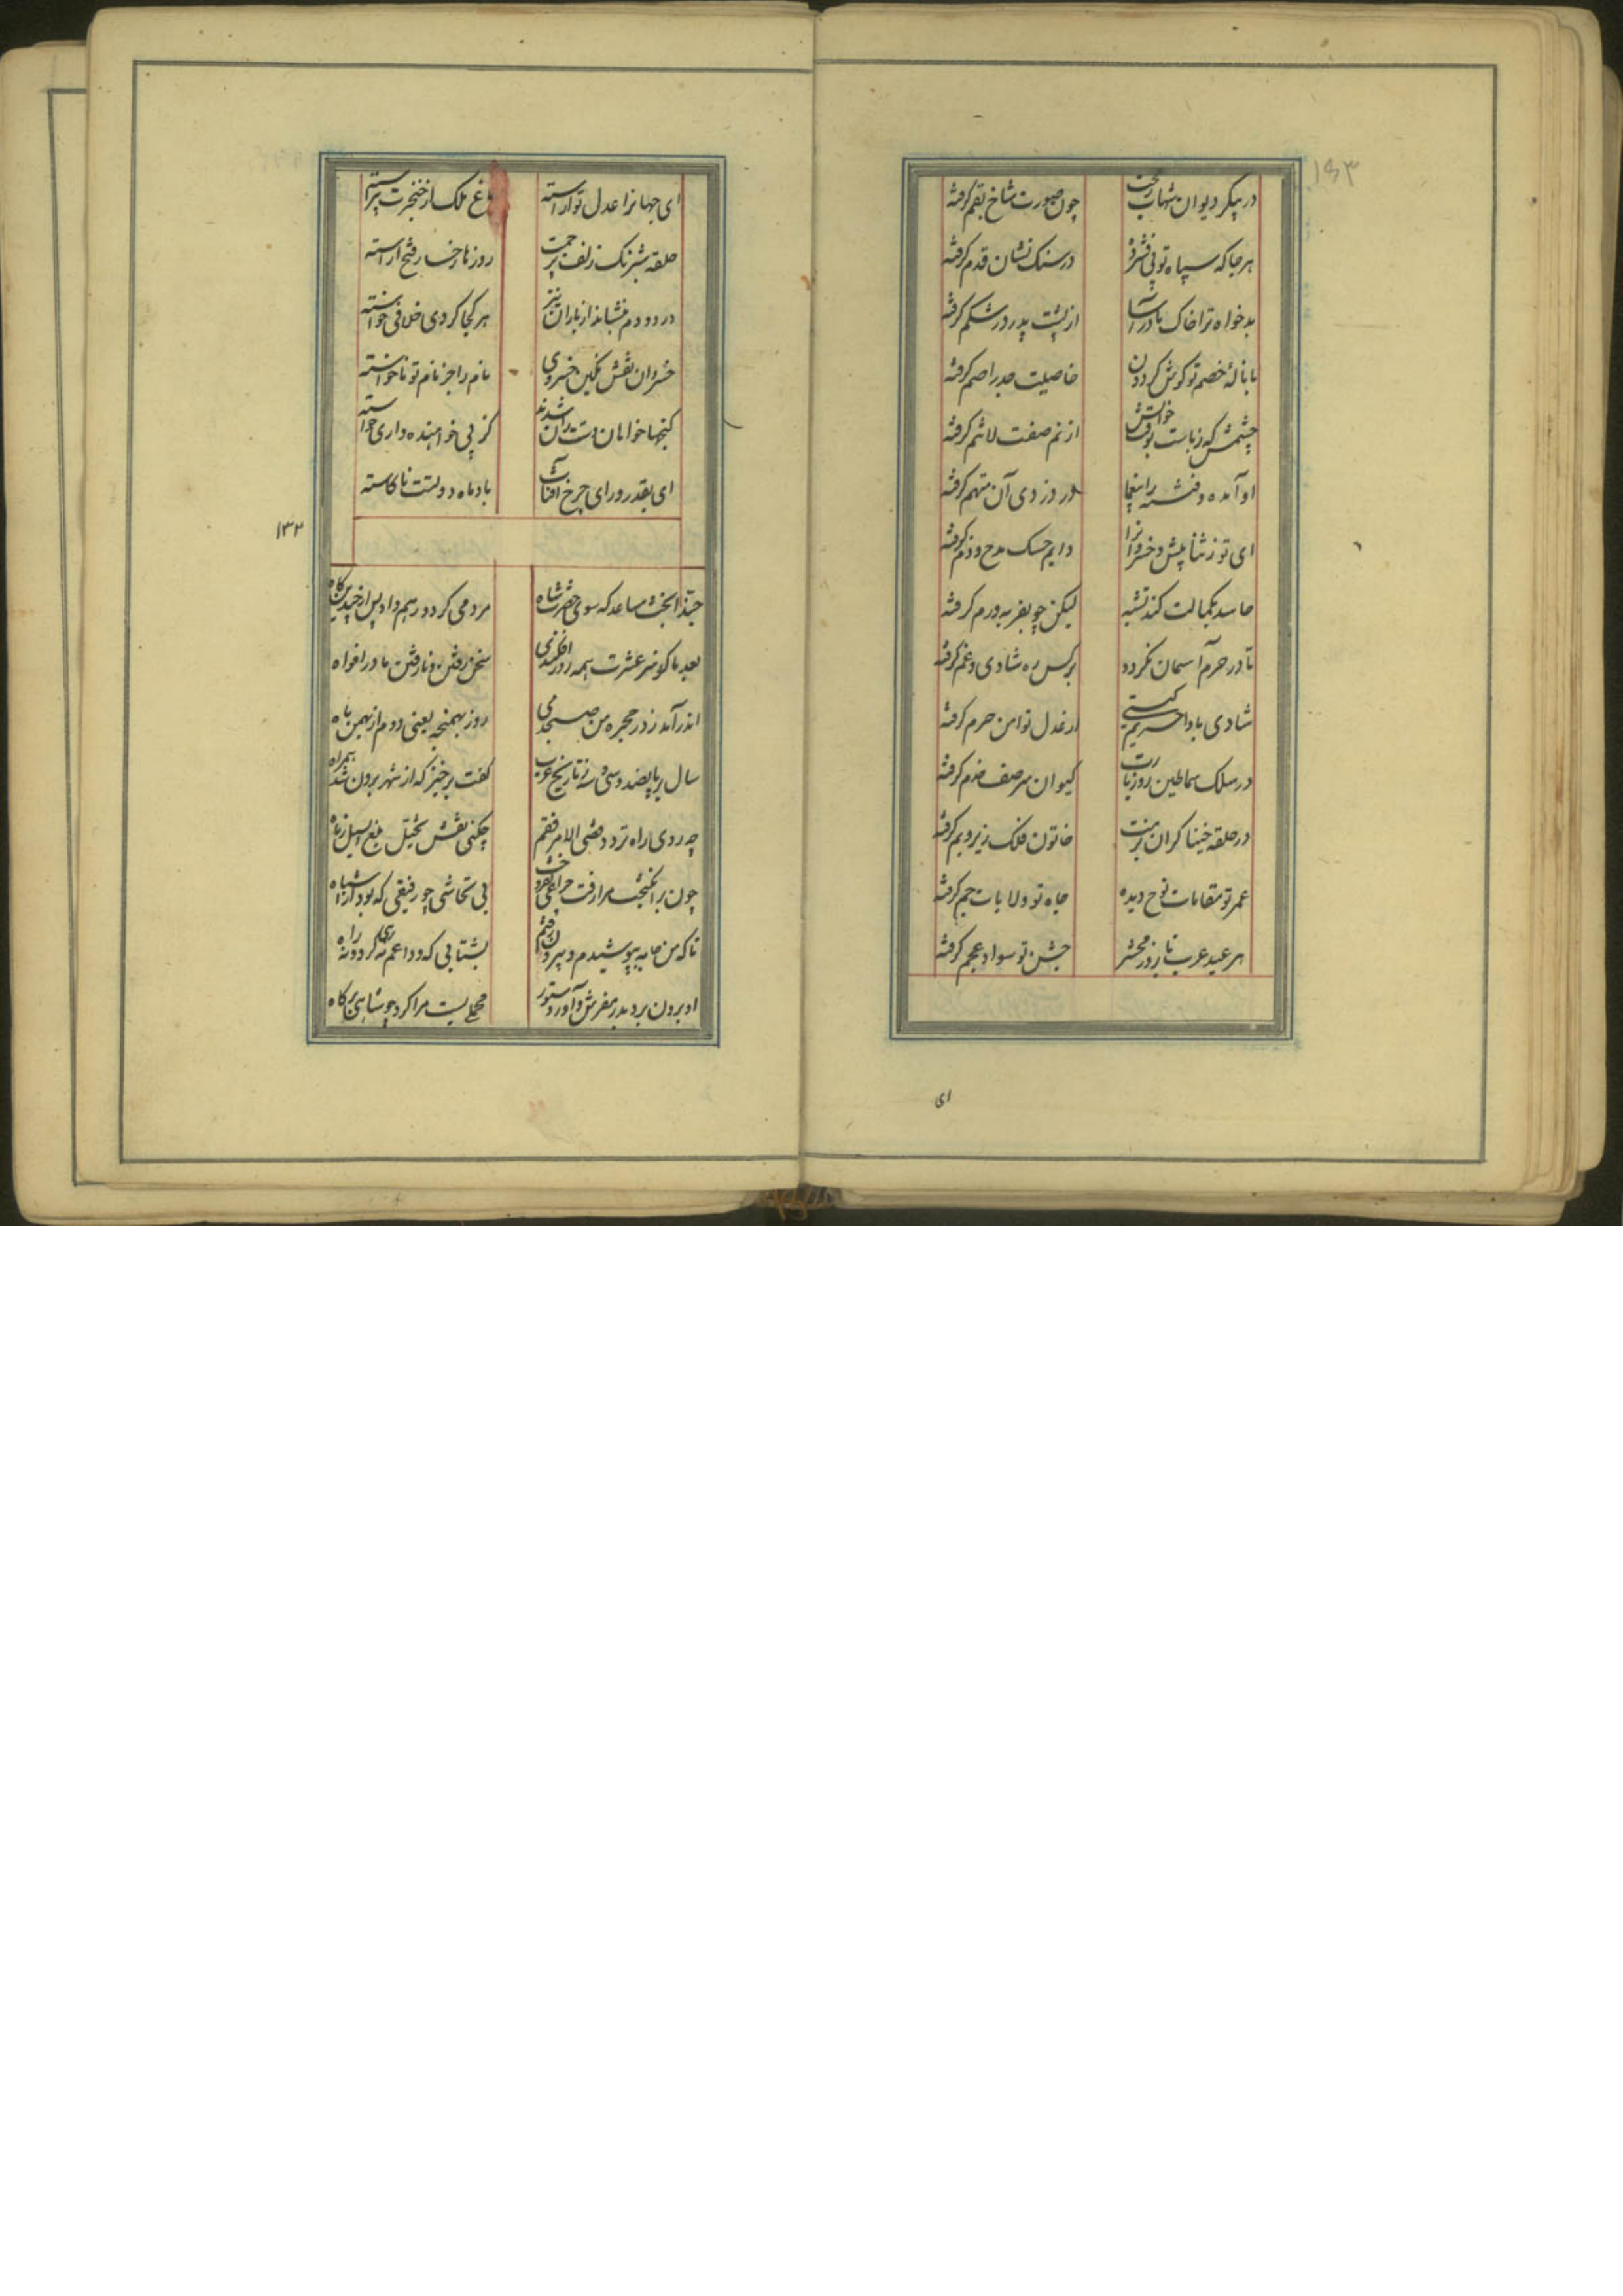 ۱۵۳
در پیکر دیوان شهاب رمحت چون صورت شاخ بقم گرفته
هرجا که سپاه تو پی فشرده در سنک نشان قدم گرفته
بدخواه ترا خاک مادر آسا از پشت پدر در شکم گرفته
با نالهٔ خصم تو کوش کردون خاصیت جدر اصم گرفته
چشمش که زباست بوقت خوابش از نم صفت لاتنم گرفته
او آمده و فتنه را بیغما در دزدی آن متهم گرفته
ای تو ز ثنا پیش و خسروانرا دایم حسک مدح و ذم گرفته
حاسد بکمالت کند تشبه لیکن چو بفربه ورم گرفته
تا در حرم آسمان نکردد بر کس ره شادی و غم گرفته
شادی بادا حریم کیتی از عدل تو امن حرم گرفته
در سلک سماطین روز بارت کیوان سر صف خدم گرفته
در حلقه خنیاکران بزمت خاتون فلک زیر و بم گرفته
عمر تو مقامات نوح دیده جاه تو ولایات جم گرفته
هر عید عرب تا بروز محشر جشن تو سواد عجم گرفته
ای
ای جهانرا عدل تو آراسته باغ ملک از خنجرت پیراسته
حلقه شبرنک زلف پرچمت روزها رخسار فتح آراسته
در دو دم بنشاند از باران تیر هر کجا کردی خلافی خواسته
خسروان نقش نکین خسروی نام را جز نام تو ناخواسته
کنجها خواهان دستت زان شدند کز پی خواهنده داری خواسته
ای بقدر و رای چرخ آفتاب باد ماه دولتت ناکاسته
۱۳۲
حبذا بخت مساعد که سوی حضرت شاه مردمی کرد و رهم داد پس از چندین گاه
بعد ما کز سر عشرت همه روز افکندی سخن رفتن و نارفتن ما در افواه
اندر آمد ز در حجره من صبحدمی روز بهمنجه یعنی دوم از بهمن ماه
سال بر پانصد و سی و سه ز تاریخ عرب کفت برخیز که از شهر برون شد همراه
چه روی راه تردد قضی الامر فقم چکنی نقش تخیل بلغ السیل زباه
چون برانکیخت مرا رفت چراغی افروخت بی تحاشی چو رفیقی که بود از اشباه
تا که من جامه بپوشیدم و بیرون رفتم بشتابی که وداعم نه رهی کرد و نه راه
او برون برد بدر مفرش و آورد ستور محملی بست مرا کرد چو شاهی برگاه